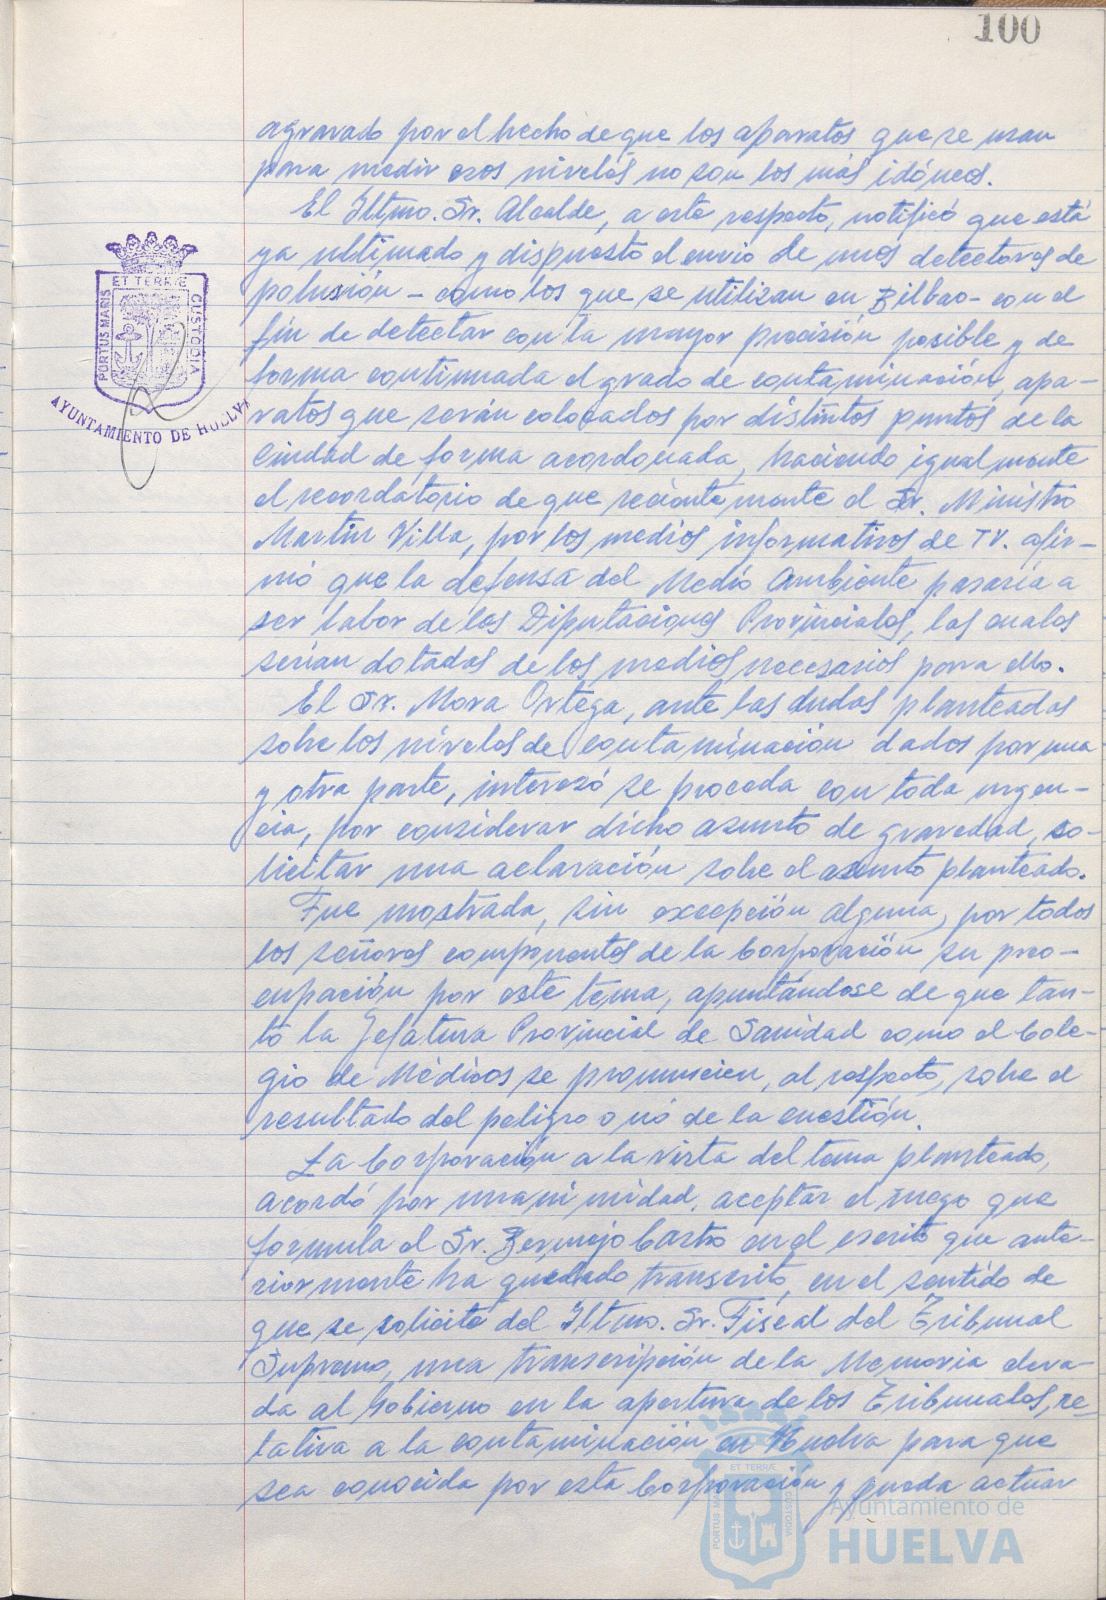 100
agravado por el hecho de que los aparatos que se usan
para medir esos niveles no son los más idóneos.
El Iltmo. Sr. Alcalde, a este respecto, notificó que está
ya ultimado y dispuesto el envio de unos detectores de
polusión - como los que se utilizan en Bilbao - con el
fin de detectar con la mayor precisión posible y de
forma continuada el grado de contaminación, apa-
ratos que serán colocados por distintos puntos de la
Ciudad de forma acordonada, haciendo igualmente
el recordatorio de que recientemente el Sr. Ministro
Martin Villa, por los medios informativos de TV. afir-
mó que la defensa del Medio Ambiente pasaría a
ser labor de las Diputaciones Provinciales, las cuales
serían dotadas de los medios necesarios para ello.
El Sr. Mora Ortega, ante las dudas planteadas
sobre los niveles de contaminación dados por una
y otra parte, interesó se proceda con toda urgen-
cia, por considerar dicho asunto de gravedad, so-
licitar una aclaración sobre el asunto planteado.
Fue mostrada, sin excepción alguna, por todos
los señores componentes de la Corporación su preo-
cupación por este tema, apuntándose de que tan-
to la Jefatura Provincial de Sanidad como el Cole-
gio de Médicos se pronuncien, al respecto, sobre el
resultado del peligro o nó de la cuestión.
La Corporación a la vista del tema planteado,
acordó por unanimidad, aceptar el ruego que
formula el Sr. Bermejo Castro en el escrito que ante-
riormente ha quedado transcrito, en el sentido de
que se solicite del Iltmo. Sr. Fiscal del Tribunal
Supremo, una transcripción de la Memoria eleva-
da al Gobierno en la apertura de los Tribunales, re-
lativa a la contaminación en Huelva para que
sea conocida por esta Corporación y pueda actuar
PORTUS MARIS
ET TERRÆ
CUSTODIA
AYUNTAMIENTO DE HUELVA
PORTUS MARIS
ET TERRÆ
CUSTODIA
Ayuntamiento de
HUELVA